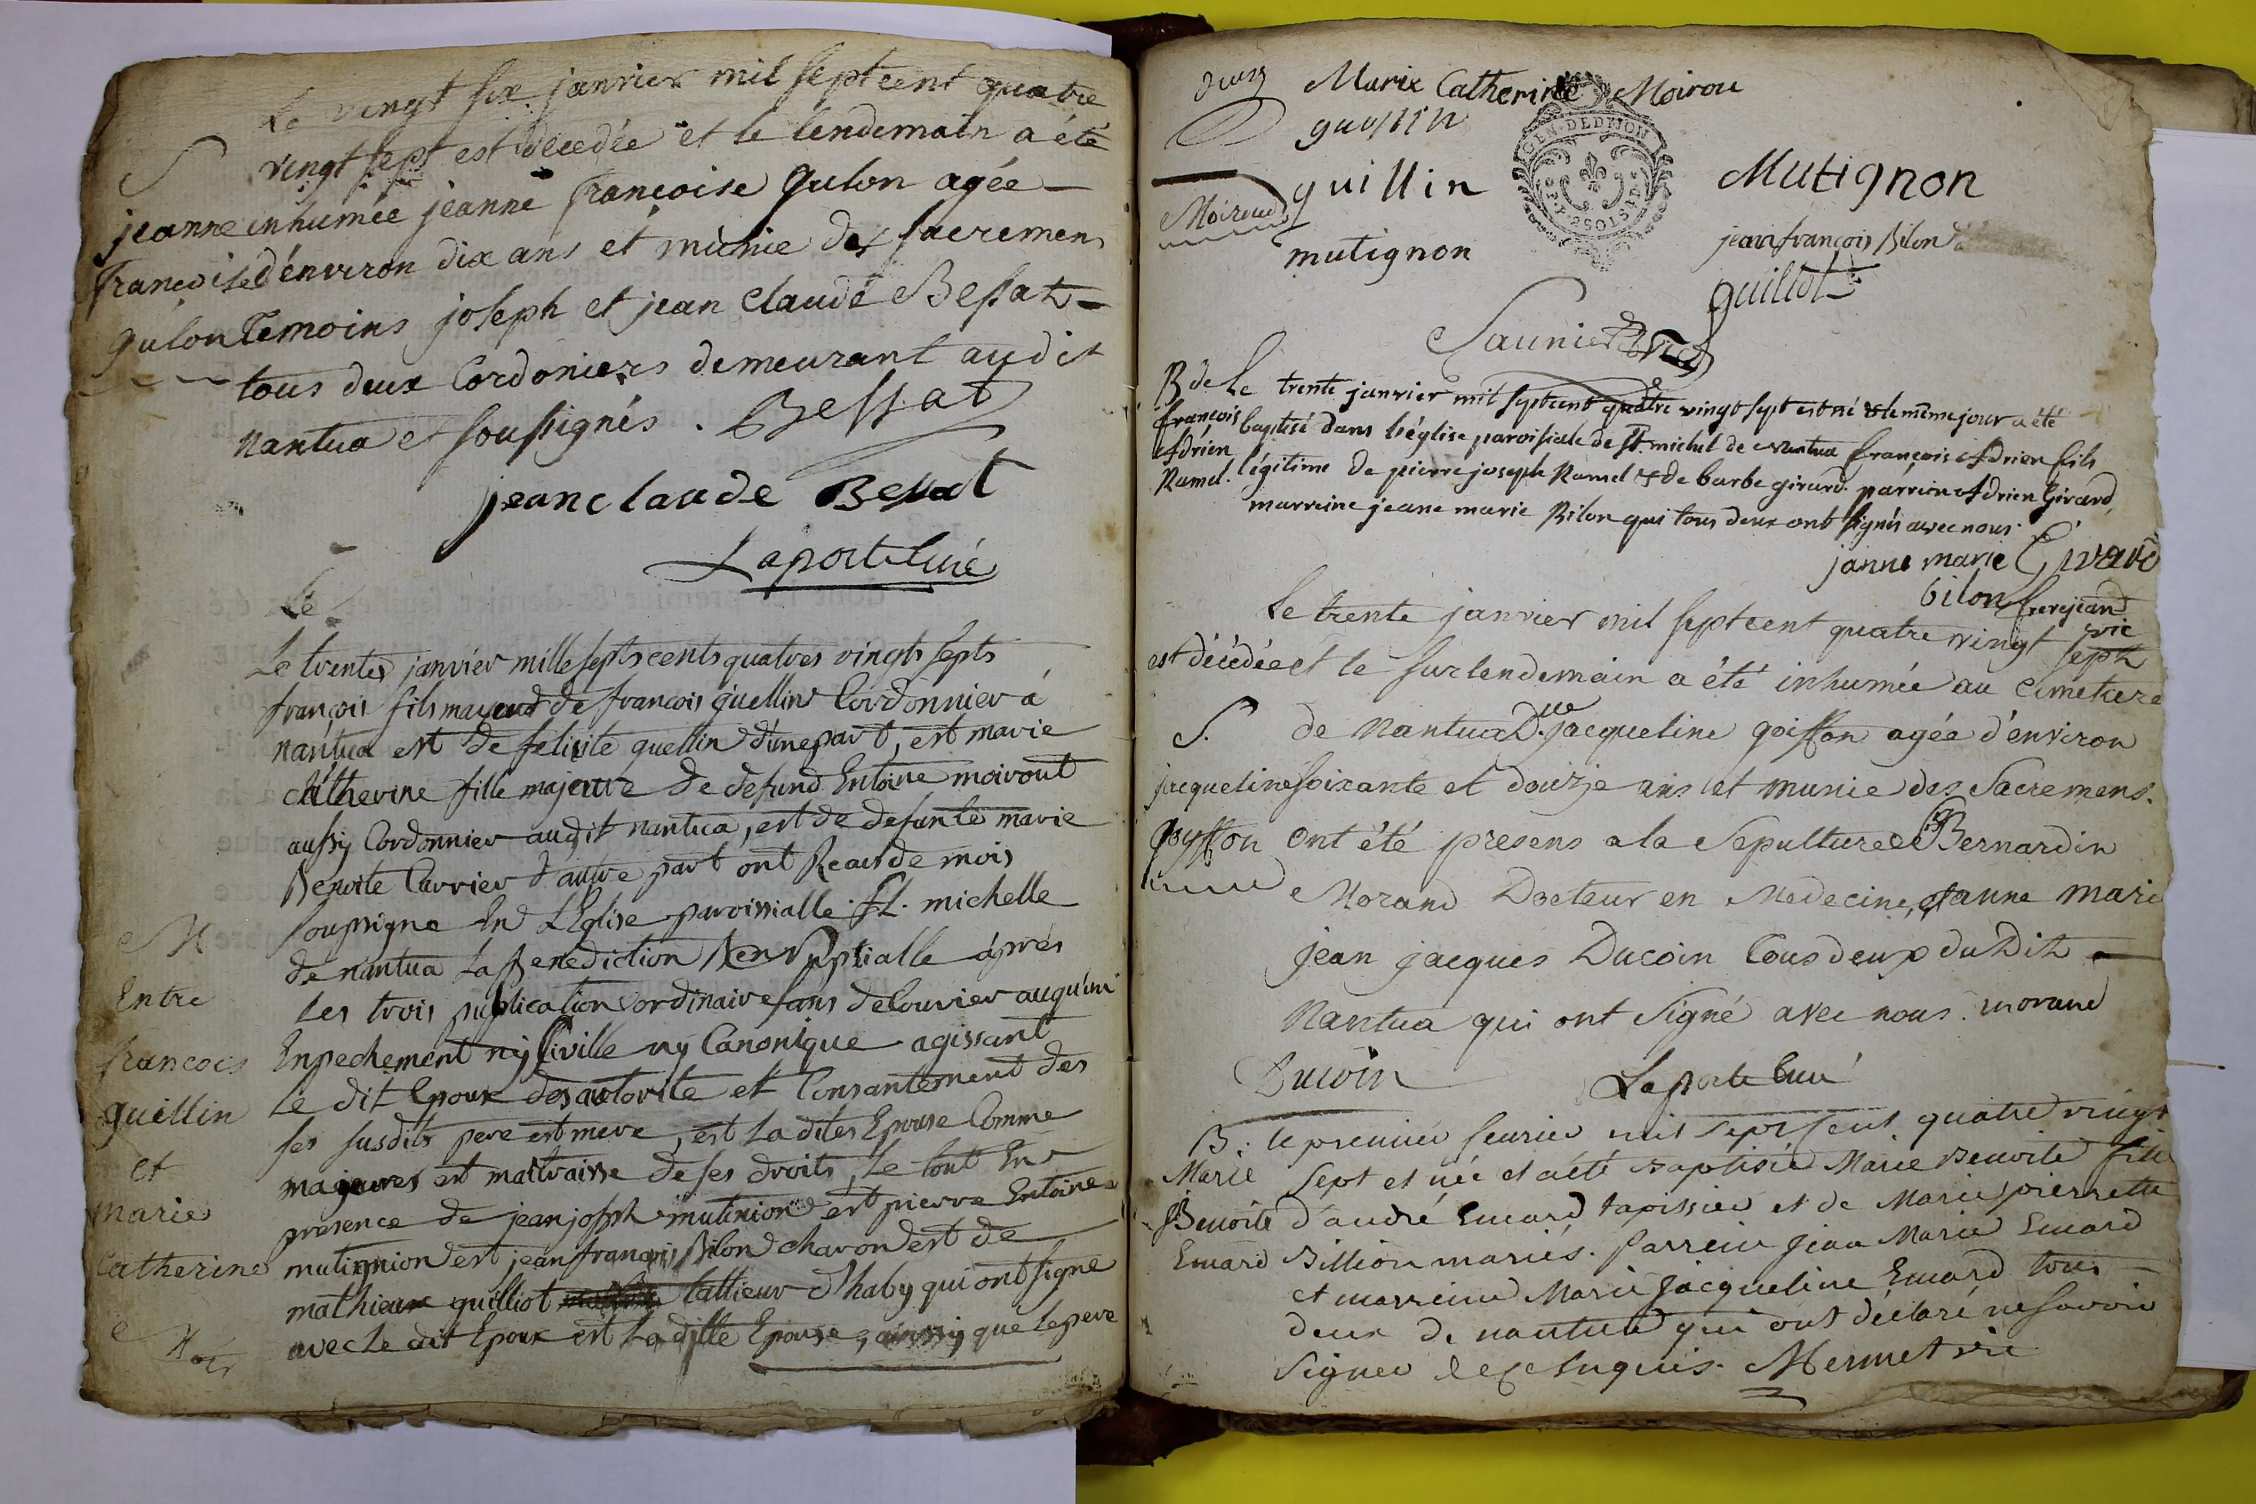 Le vingt six janvier mil sept cent quatre
vingt sept est décedée et le lendemain a été
S
jeanne inhumée jeanne françoise Gulon agée
françoise d'énviron dix ans et munie des sacremens
Gulon Temoins joseph et jean claude Bessat
tous deux Cordoniers demeurant audit
nantua et soussignés. Bessat
jean claude Bessat
Laporte Curé
Le
Le trentes janvier mille septs cents quatres vingts septs
françois fils majeur de francois guellin Cordonnier á
nantua est de felisite guellin d'une part, est marie
chatherine fille majeure de defund Entoine moirout
aussy Cordonnier audit nantua, est de defunte marie
Benoite Carrier d'autre part ont Recus de mois
soussigne En L'Eglise paroissialle St. michelle
de nantua La Benediction Nuptialle áprés
Les trois publication ordinaire sans decouvrier auqu'un
Enpechement ny Civille ny Canonique agissant
Le dit Epoux des autorite et Consantement des
ses susdits pere est mere, est La dites Epouse Comme
majeures est maitraisse de ses droits, Le tout En
presence de jean joseph mutinion est pierre Entoine
mutignion est jean françois Bilon charon est de
mathieux guilliot tallieur d'haby qui ont signe
avec le dit Epoux est La ditte Epouse, aussy que le pere
M
Entre
francois
guillin
et
marie
Catherine
Marie Catherine Moirou
guillin
Mutignon
Moiroud
mutignon
jean françois Bilon
guillot
Saunier
GEN. DE DIJON
B de Le trente janvier mil sept cent quatre vingt sept est né & le même jour a été
françois baptisé dans l'église paroissiale de St. michel de Nantua françois Adrien fils
Adrien
Ramel. légitime de pierre joseph Ramel & de barbe girard. parrein Adrien Girard,
marreine jeane marie Bilon qui tous deux ont signés avec nous.
janne marie Girard
bilon
frerejean vic
Le trente janvier mil sept cent quatre vingt sept
est décédée et le surlendemain a été inhumée au Cimetiere
S. de Nantua Dlle jacqueline goiffon agée d'environ
jacqueline soixante et douze ans et munie des Sacremens.
goyffon ont été presens a la Sepulture Bernardin
Morand Docteur en Medecine, et anne marie
jean jacques Ducoin Tous deux du Dit
Nantua qui ont signé avec nous. morand
Ducoin Laporte Curé
B. le premier fevrier mil sept cent quatre vingt
Marie sept est née et a été Baptisée Marie Benoite fille
Benoite d'andré Emard tapissier et de Marie pierrette
Emard Billion mariés. Parrein Jean Marie Emard
et marreine Marie Jacqueline Emard tous
deux de nantua qui ont déclaré ne savoir
signer de ce enquis. Mermet vic